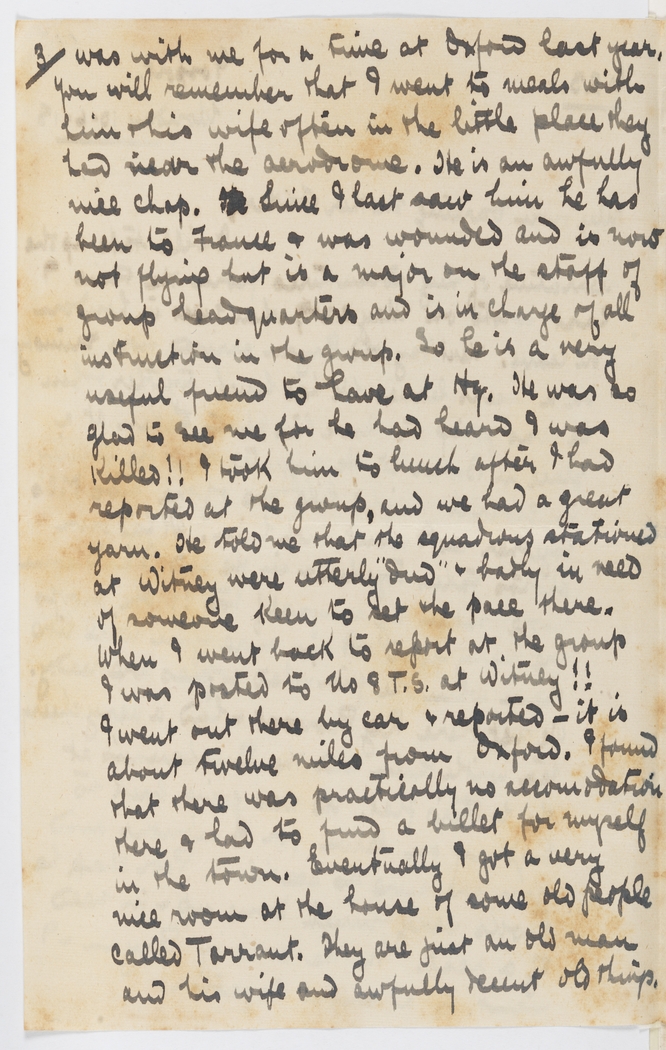 3/ was with me for a time at Oxford last year.
You will remember that I went to meals with
him & his wife often in the little place they
had near the aerodrome. He is an awfully
nice chap. Since I last saw him he has
been to France & was wounded and is now
not flying but is a major on the staff of
group headquarters and is in charge of all
instruction in the group. So he is a very
useful friend to have at Hq. He was so
glad to see me for he had heard I was
killed!! I took him to lunch after I had
reported at the group, and we had a great
yarn. He told me that the squadrons stationed
at Witney were utterly "dud" & badly in need
of someone keen to set the pace there.
When I went back to report at the group
I was posted to No 8 T.S. at Witney!!
I went out there by car & reported – it is
about twelve miles from Oxford. I found
that there was practically no accomodation
there & had to find a billet for myself
in the town. Eventually I got a very
nice room at the house of some old people
called Tarrant. They are just an old man
and his wife and awfully decent old things.